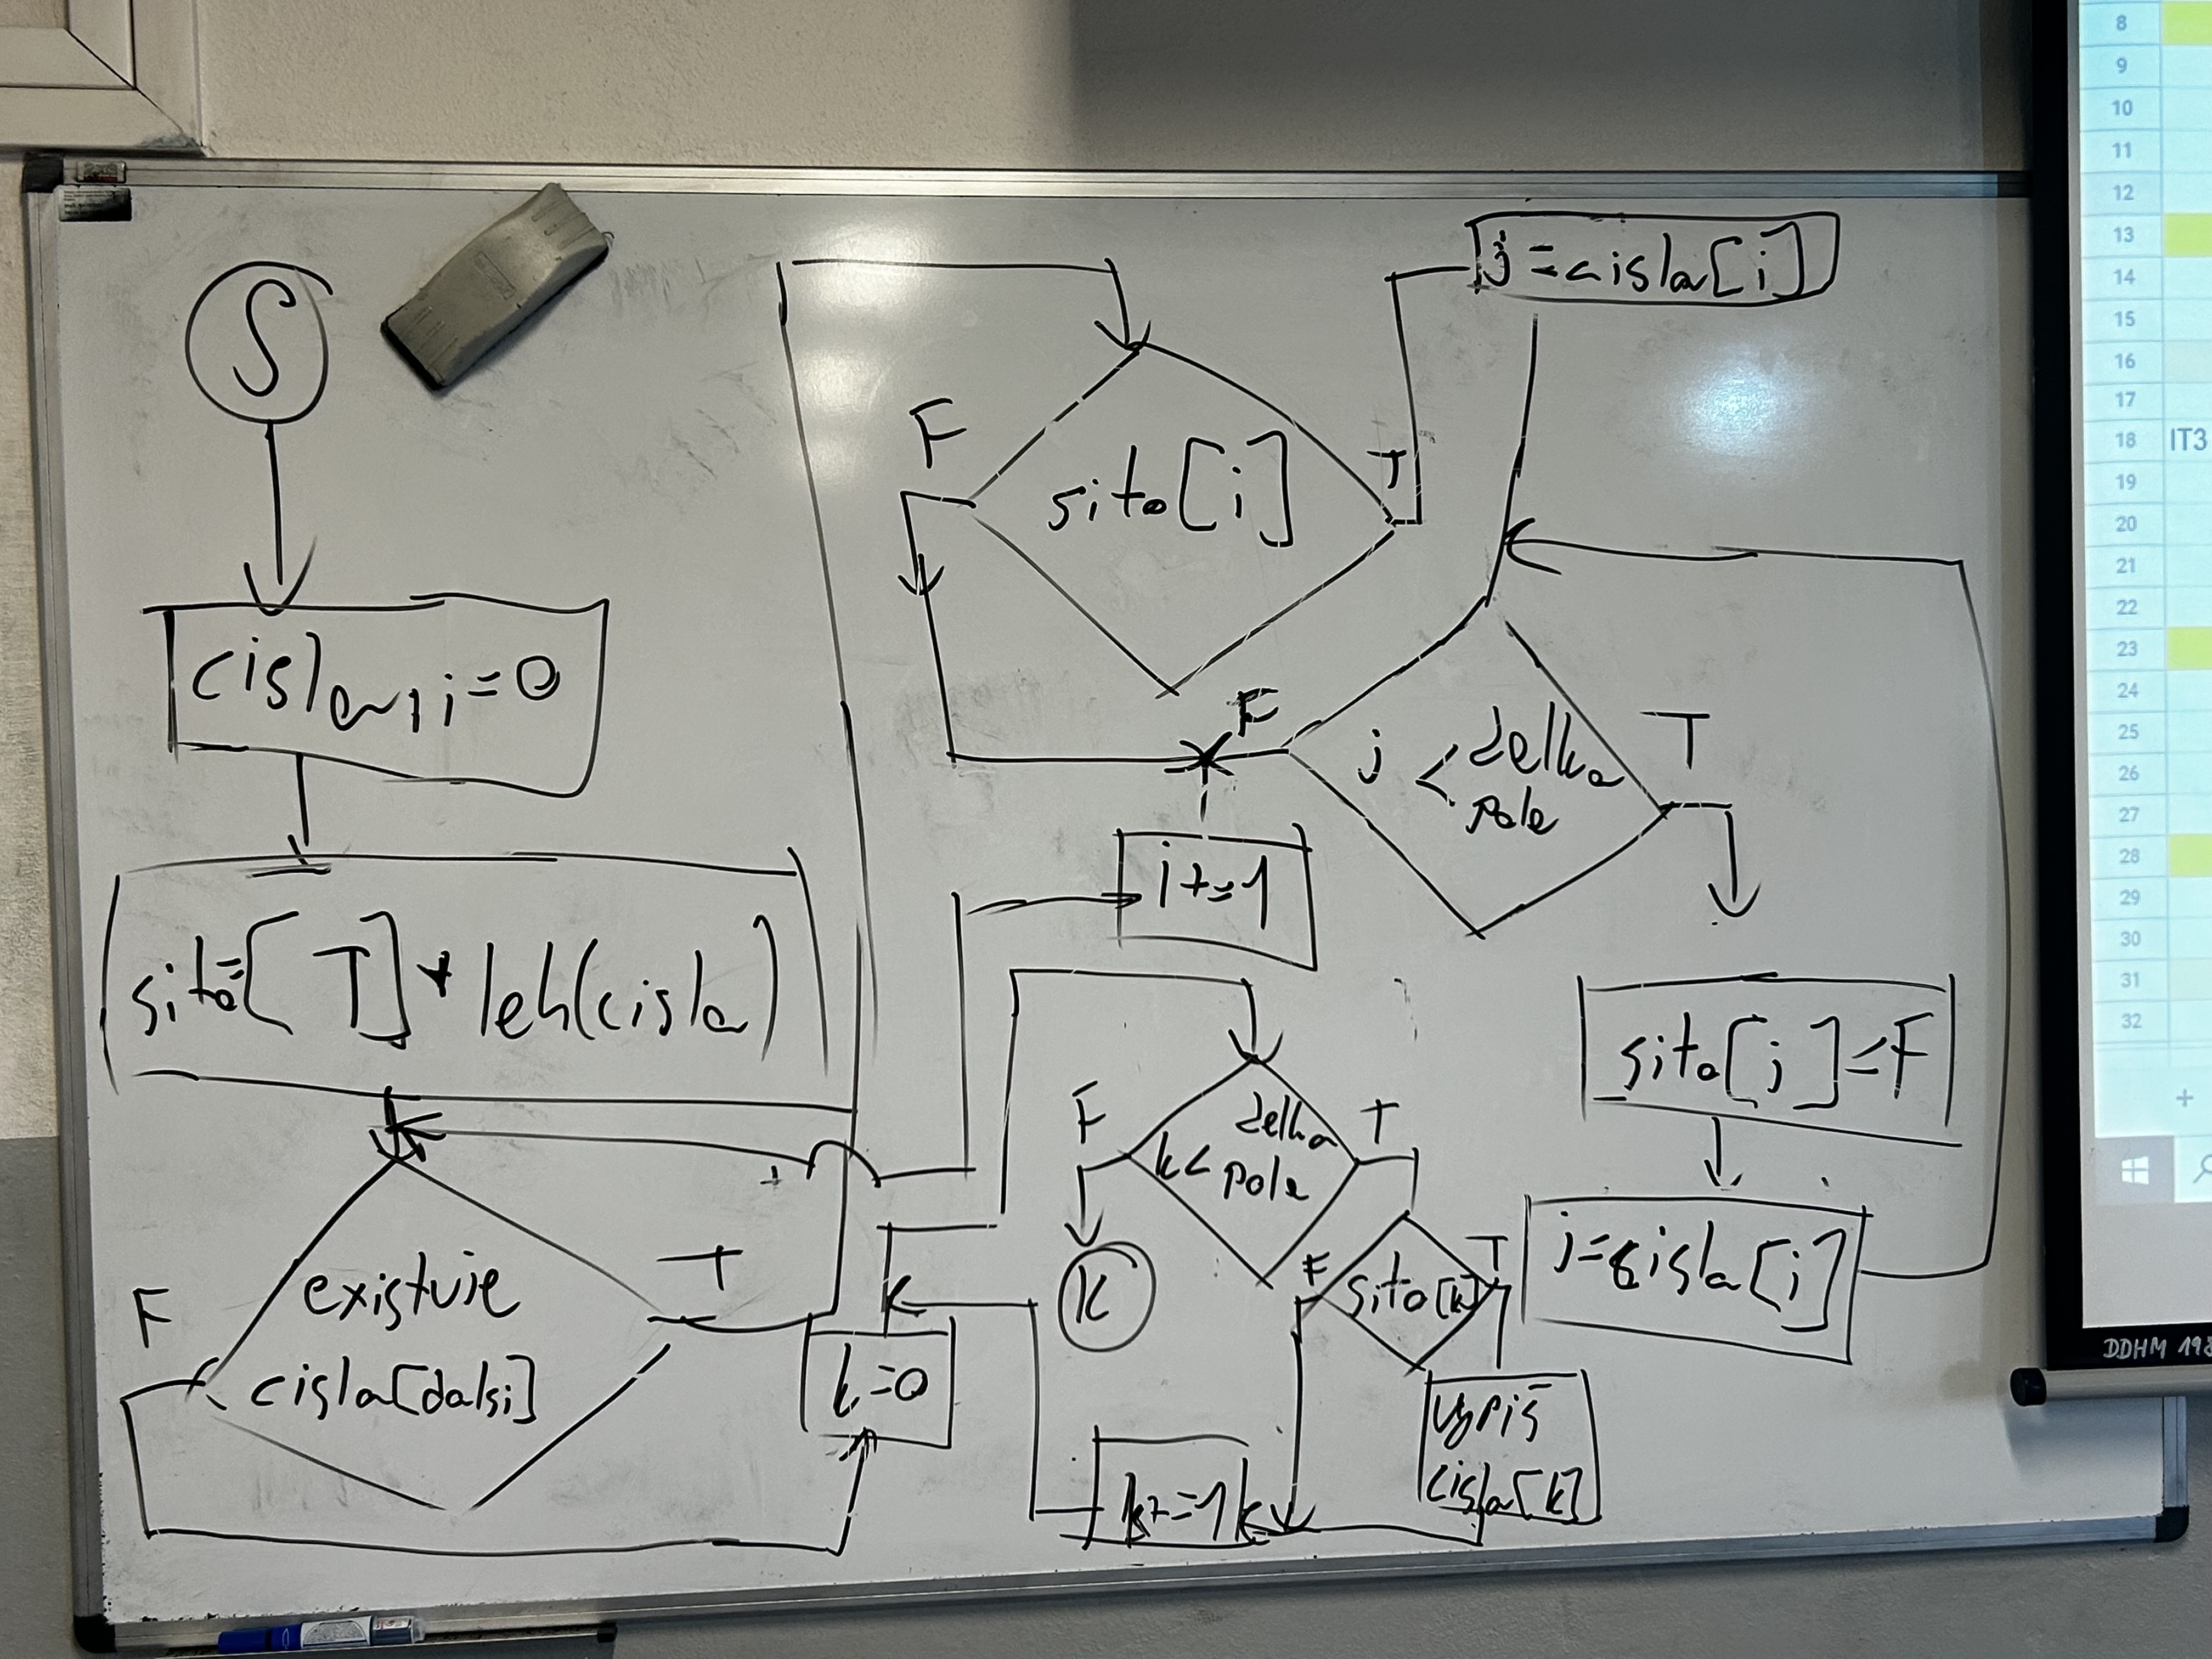 S
cisla, i=0
sito=[T]*leh(cisla)
existuje
cisla[dalsi]
F
T
sito[i]
F
T
j=cisla[i]
j < delka
pole
F
T
i+=1
sito[j]=F
k=0
k< delka
pole
F
T
K
sito[k]
F
T
vypiš
cisla[k]
k+=1
8
9
10
11
12
13
14
15
16
17
18 IT3
19
20
21
22
23
24
25
26
27
28
29
30
31
32
+